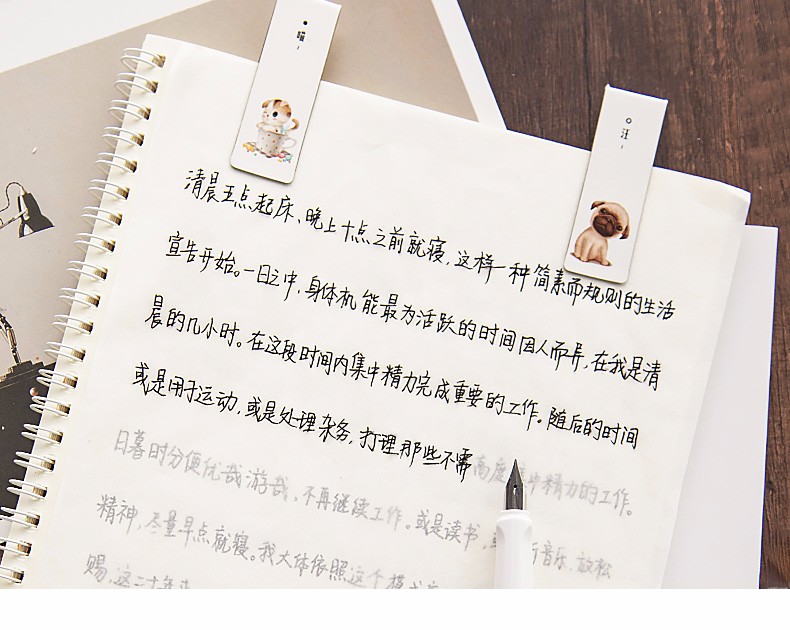 喵
汪
清晨五点起床、晚上十点之前就寝,这样一种简素而规则的生活
宣告开始。一日之中,身体机能最为活跃的时间因人而异,在我是清
晨的几小时。在这段时间内集中精力完成重要的工作。随后的时间
或是用于运动,或是处理杂务,打理那些不需高度集中精力的工作。
日暮时分便优哉游哉,不再继续工作。或是读书,或听音乐,放松
精神,尽量早点就寝。我大体依照这个模式
赐,这二十年来